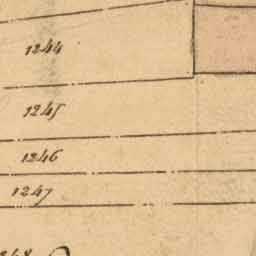 1244
1245
1246
1247